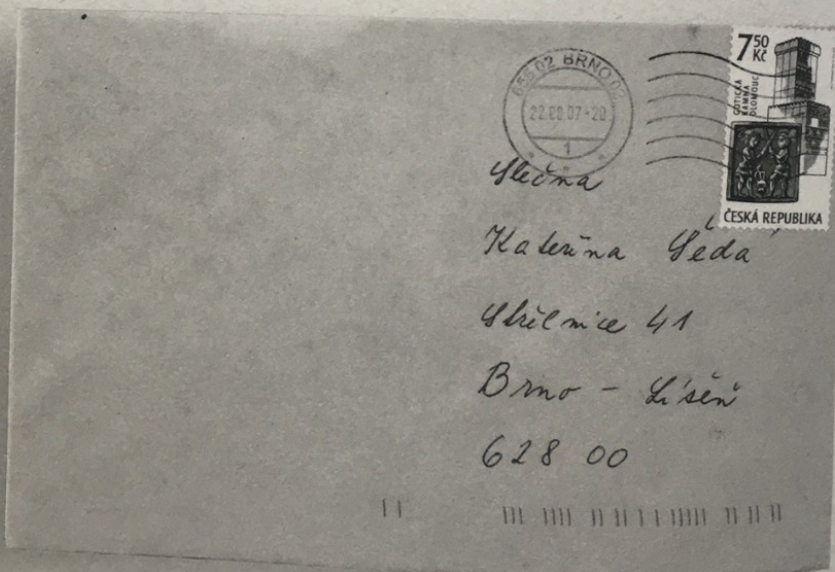 655 02 BRNO 02
22.08.07-20
1
7 50
Kč
GOTICKÁ
KAMNA
OLOMOUC
ČESKÁ REPUBLIKA
Slečna
Kateřina Šedá
Střelnice 41
Brno - Líšeň
628 00